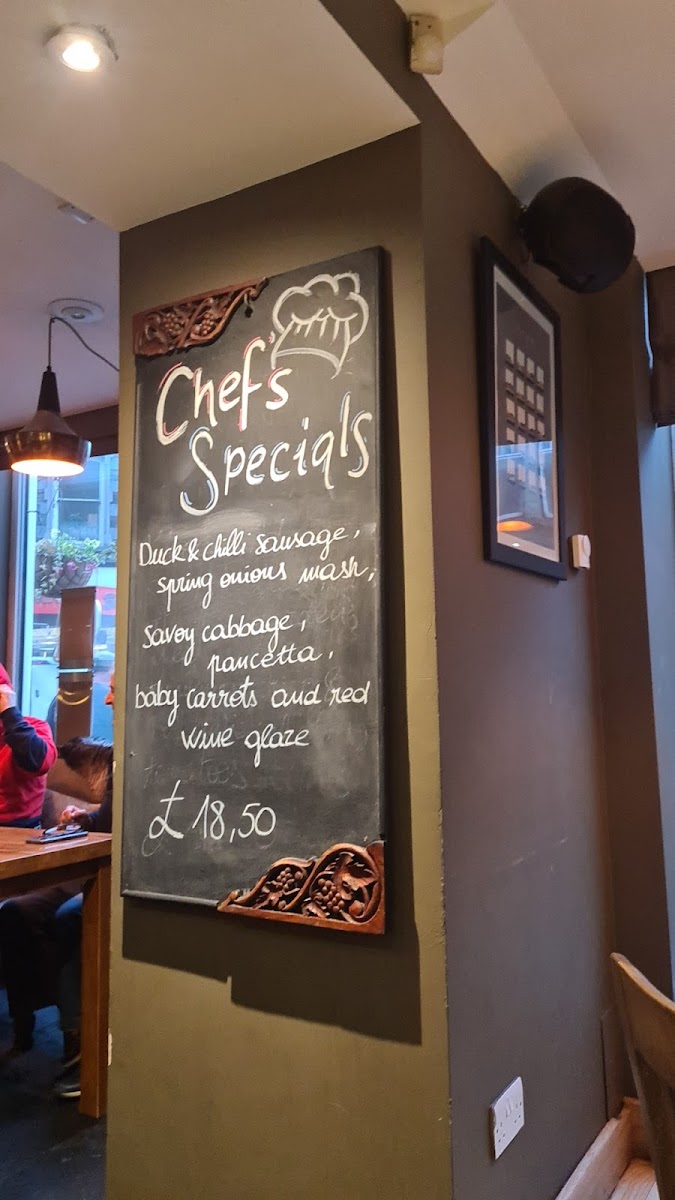 Chef's
Specials
Duck & chilli sausage,
spring onious mash,
savoy cabbage,
pancetta,
baby carrots and red
wine glaze
£ 18,50